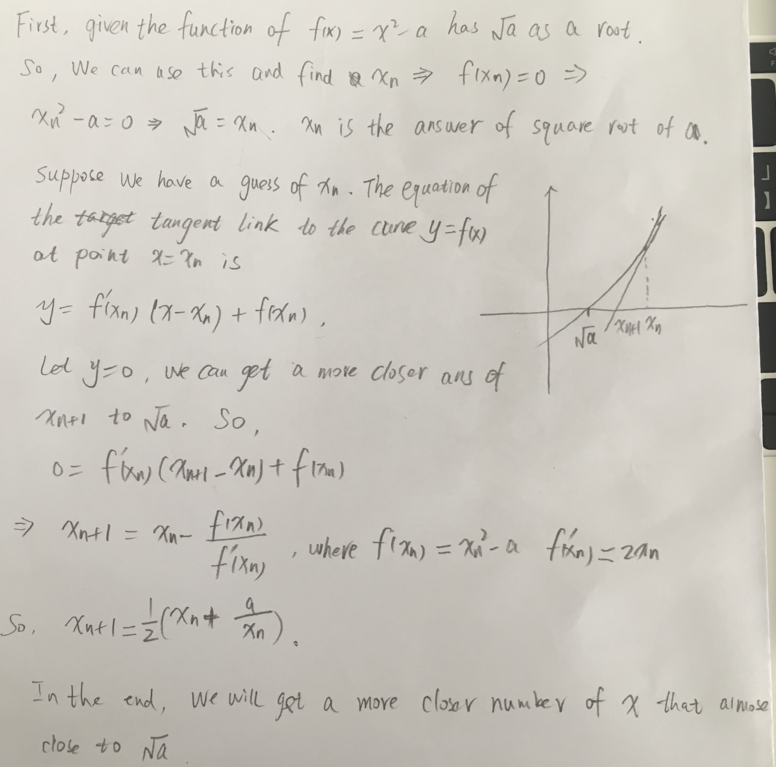 First, given the function of f(x) = x² - a has √a as a root.
So, We can use this and find xn ⇒ f(xn) = 0 ⇒
xn² - a = 0 ⇒ √a = xn. xn is the answer of square root of a.
Suppose we have a guess of xn. The equation of
the target tangent link to the curve y = f(x)
at point x = xn is
y = f'(xn) (x - xn) + f(xn).
√a xn+1 xn
Let y=0, we can get a more closer ans of
xn+1 to √a. So,
0 = f'(xn) (xn+1 - xn) + f(xn)
⇒ xn+1 = xn - f(xn)/f'(xn), where f(xn) = xn² - a f'(xn) = 2xn
So, xn+1 = 1/2 (xn + a/xn).
In the end, we will get a more closer number of x that almose
close to √a